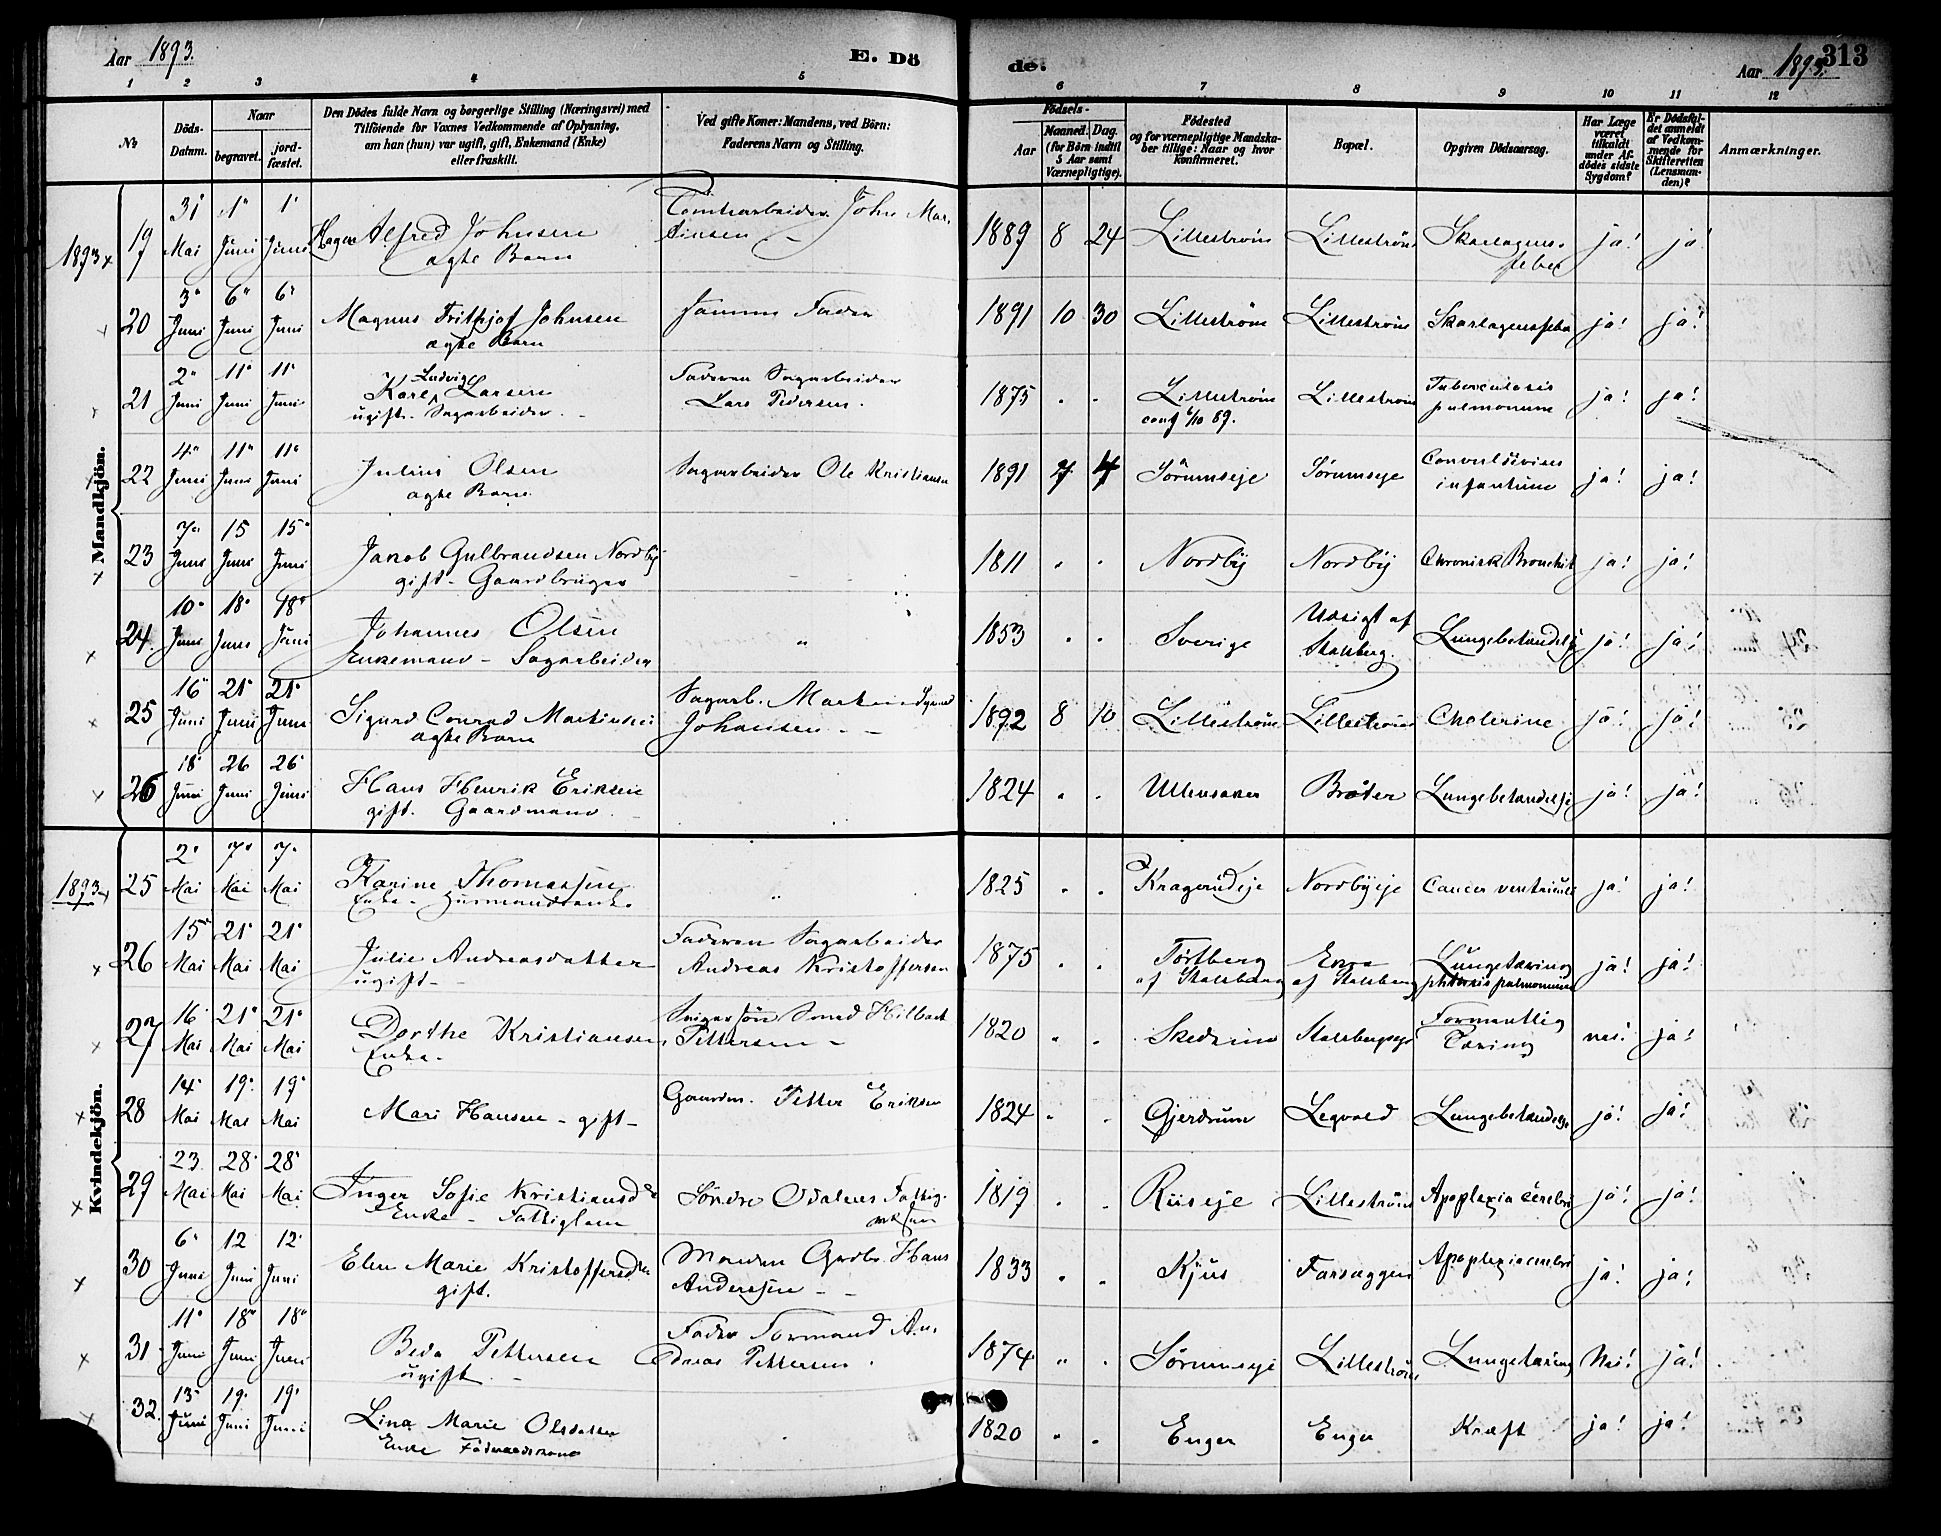 Aar 1893. E. Dö de. Aar 1893. 313
1 2 3 4 5 6 7 8 9 10 11 12
No Döds-Datum. Naar begravet. jordfæstet.
Den Dödes fulde Navn og borgerlige Stilling (Næringsvei) med
Tilföiende for Voxnes Vedkommende af Oplysning,
om han (hun) var ugift, gift, Enkemand (Enke)
eller fraskilt.
Ved gifte Koner: Mandens, ved Börn:
Faderens Navn og Stilling.
Födsels-
Aar Maaned. Dag.
(for Börn indtil
5 Aar samt
Værnepligtige).
Födested
og for værnepligtige Mandska-
ber tillige: Naar og hvor
konfirmeret.
Bopæl.
Opgiven Dödsaarsag.
Har Læge
været
tilkaldt
under Af-
dödes sidste
Sygdom?
Er Dödsfal-
det anmeldt
af Vedkom-
mende for
Skifteretten
(Lensman-
den)?
Anmærkninger.
Mandkjön.
1893 19 31 Mai 1 Juni 1 Juni Alfred Johnsen Tomtearbeider John Mar-
ægte Barn tinsen 1889 8 24 Lilleström Lilleström Skarlagens-
feber ja! ja
20 3 Juni 6 Juni 6 Juni Magnus Frithjof Johnsen Samme Fader 1891 10 30 Lilleström Lilleström Skarlagensfeber ja! ja!
ægte Barn
21 2 Juni 11 Juni 11 Juni Karl Ludvig Larsen Faderen Sagarbeider 1875 Lilleström Lilleström Tuberculosis ja! ja!
ugift. Sagarbeider Lars Pedersen. conf 6/10 89. pulmonum
22 4 Juni 11 Juni 11 Juni Julius Olsen Sagarbeider Ole Kristiansen 1891 7 4 Sörumseje Sörumseje ja! ja!
ægte Barn infantum
23 7 Juni 15 Juni 15 Juni Jacob Gulbrandsen Nordby 1811 Nordby Nordby Chronisk Bronchit ja! ja!
gift - Gaardbruger
24. 10 Juni 18 Juni 18 Juni Johannes Olsen " 1853 Sverige Udsigt af Lungebetændelse ja! ja!
Enkemand - Sagarbeider Stalsberg.
25 16 Juni 21 Juni 21 Juni Sigurd Conrad Martinsen Sagarb. Martin 1892 8 10 Lilleström Lilleström Cholerine ja! ja!
ægte Barn Johansen
26 18 Juni 26 Juni 26 Juni Hans Henrik Eriksen 1824 Ullensaker Bråter Lungebetændelse ja! ja!
gift. Gaardmand
Kvindekjön.
1893 25 2 Mai 7 Mai 7 Mai Karine Thomassen 1825 Kragerudeje Nordbyeje Cancer ventriculi ja! ja!
Enke - Husmandsenke
26 15 Mai 21 Mai 21 Mai Julie Andreasdatter Faderen Sagarbeider 1875 Törtberg Lungetæring ja! ja!
ugift Andreas Kristoffersen af Stalsberg af Stalsberg phthisis pulmonum
27 16 Mai 21 Mai 21 Mai Dorthe Kristiansen Svigersön Smed 1820 Skedsmo Stalsbergeje Formentlig nei! ja!
Enke. Pettersen Tæring
28 14 Mai 19 Mai 19 Mai Mari Hansen - gift - Gaardm. Petter Eriksen 1824 Gjerdrum Leqvold Lungebetændelse ja! ja!
29 23 Mai 28 Mai 28 Mai Inger Sofie Kristiansd. Söndre Odalens Fattig- 1819 Riiseje Lilleström Apoplexia cerebri ja! ja!
Enke - Fattiglem
30 6 Juni 12 Juni 12 Juni Elen Marie Kristoffersdtr Manden Gardbr. Hans 1833 Kjus Farseggen Apoplexia cerebri ja! ja!
gift. Andersen
31 11 Juni 18 Juni 18 Juni Beda Pettersen Fader Formand An- 1874 Sörumseje Lilleström Lungetæring Nei! ja!
ugift dreas Pettersen.
32. 13 Juni 19 Juni 19 Juni Lina Marie Olsdatter 1820 Enger Enger Kræft ja! ja!
Enke Föderaadskone